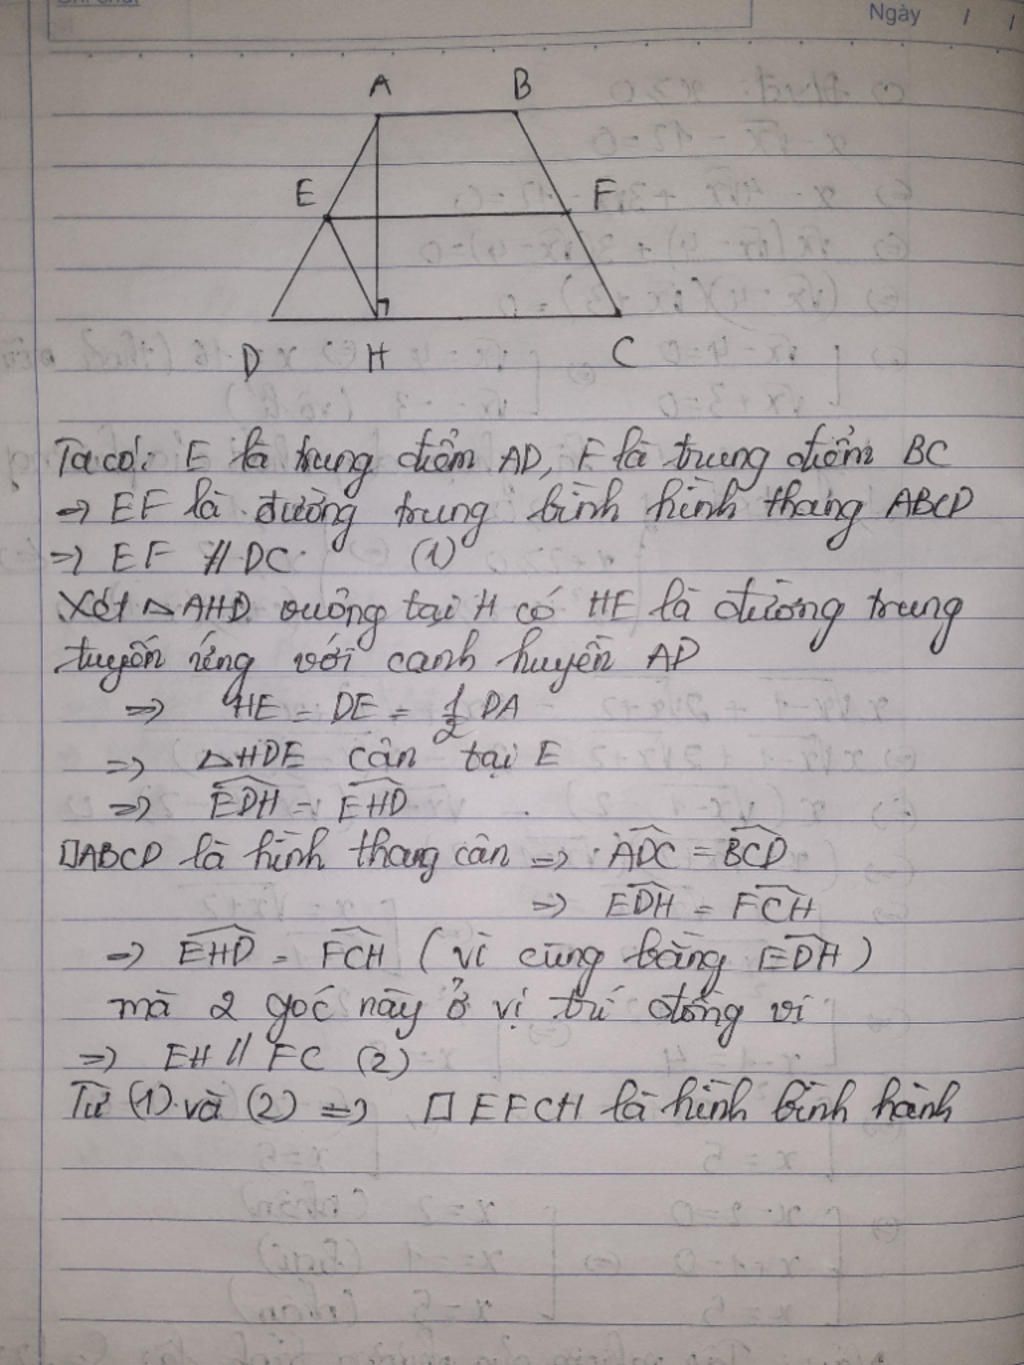 Ngày / /
A B
E F
D H C
Ta có: E là trung điểm AD, F là trung điểm BC
=> EF là đường trung bình hình thang ABCD
=> EF // DC (1)
Xét △AHD vuông tại H có HE là đường trung
tuyến ứng với cạnh huyền AD
=> HE = DE = 1/2 DA
=> △HDE cân tại E
=> \widehat{EDH} = \widehat{EHD}
□ABCD là hình thang cân => \widehat{ADC} = \widehat{BCD}
=> \widehat{EDH} = \widehat{FCH}
=> \widehat{EHD} = \widehat{FCH} (vì cùng bằng \widehat{EDH})
mà 2 góc này ở vị trí đồng vị
=> EH // FC (2)
Từ (1) và (2) => □ EFCH là hình bình hành